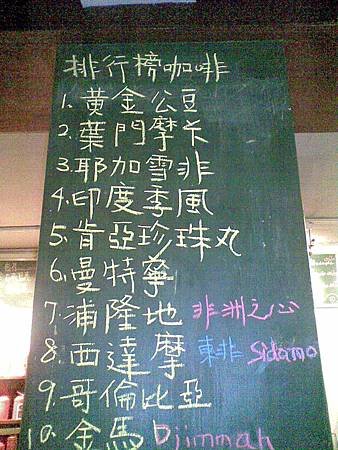 排行榜咖啡
1. 黃金公豆
2. 葉門摩卡
3. 耶加雪非
4. 印度季風
5. 肯亞珍珠丸
6. 曼特寧
7. 浦隆地 非洲之心
8. 西達摩 東非 Sidamo
9. 哥倫比亞
10. 金馬 Djimmah